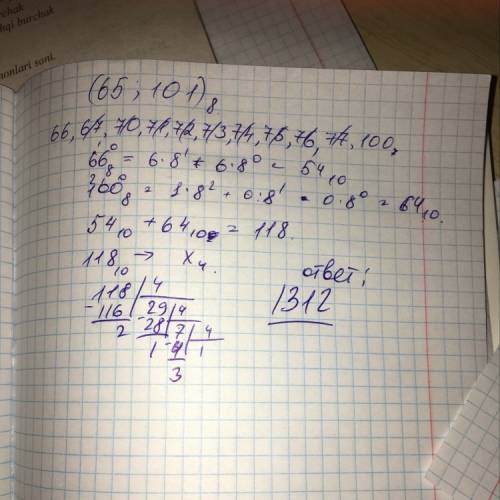 rchak
hqi burchak
nonlari soni.
(65 ; 101)₈
66, 67, 70, 71, 72, 73, 74, 75, 76, 77, 100,
66₈ = 6·8¹ + 6·8⁰ = 54₁₀
100₈ = 1·8² + 0·8¹ - 0·8⁰ = 64₁₀.
54₁₀ + 64₁₀ = 118.
118₁₀ → X₄.
ответ:
1312
118 | 4
-116 | 29 | 4
2 -28 | 7 | 4
1 -4 | 1
3